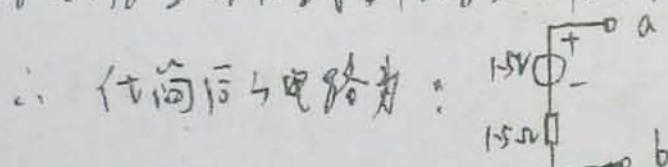 ∴ 化简后的电路为：
a
+
1.5V
-
1.5Ω
b